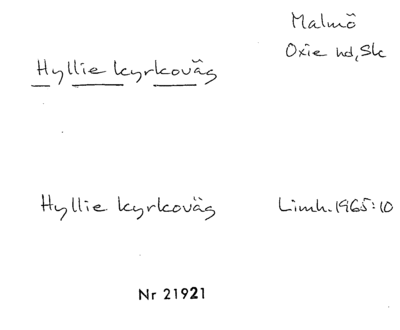 Malmö
Oxie hd, Sk
Hyllie kyrkoväg
Hyllie kyrkoväg Limh. 1965:10
Nr 21921